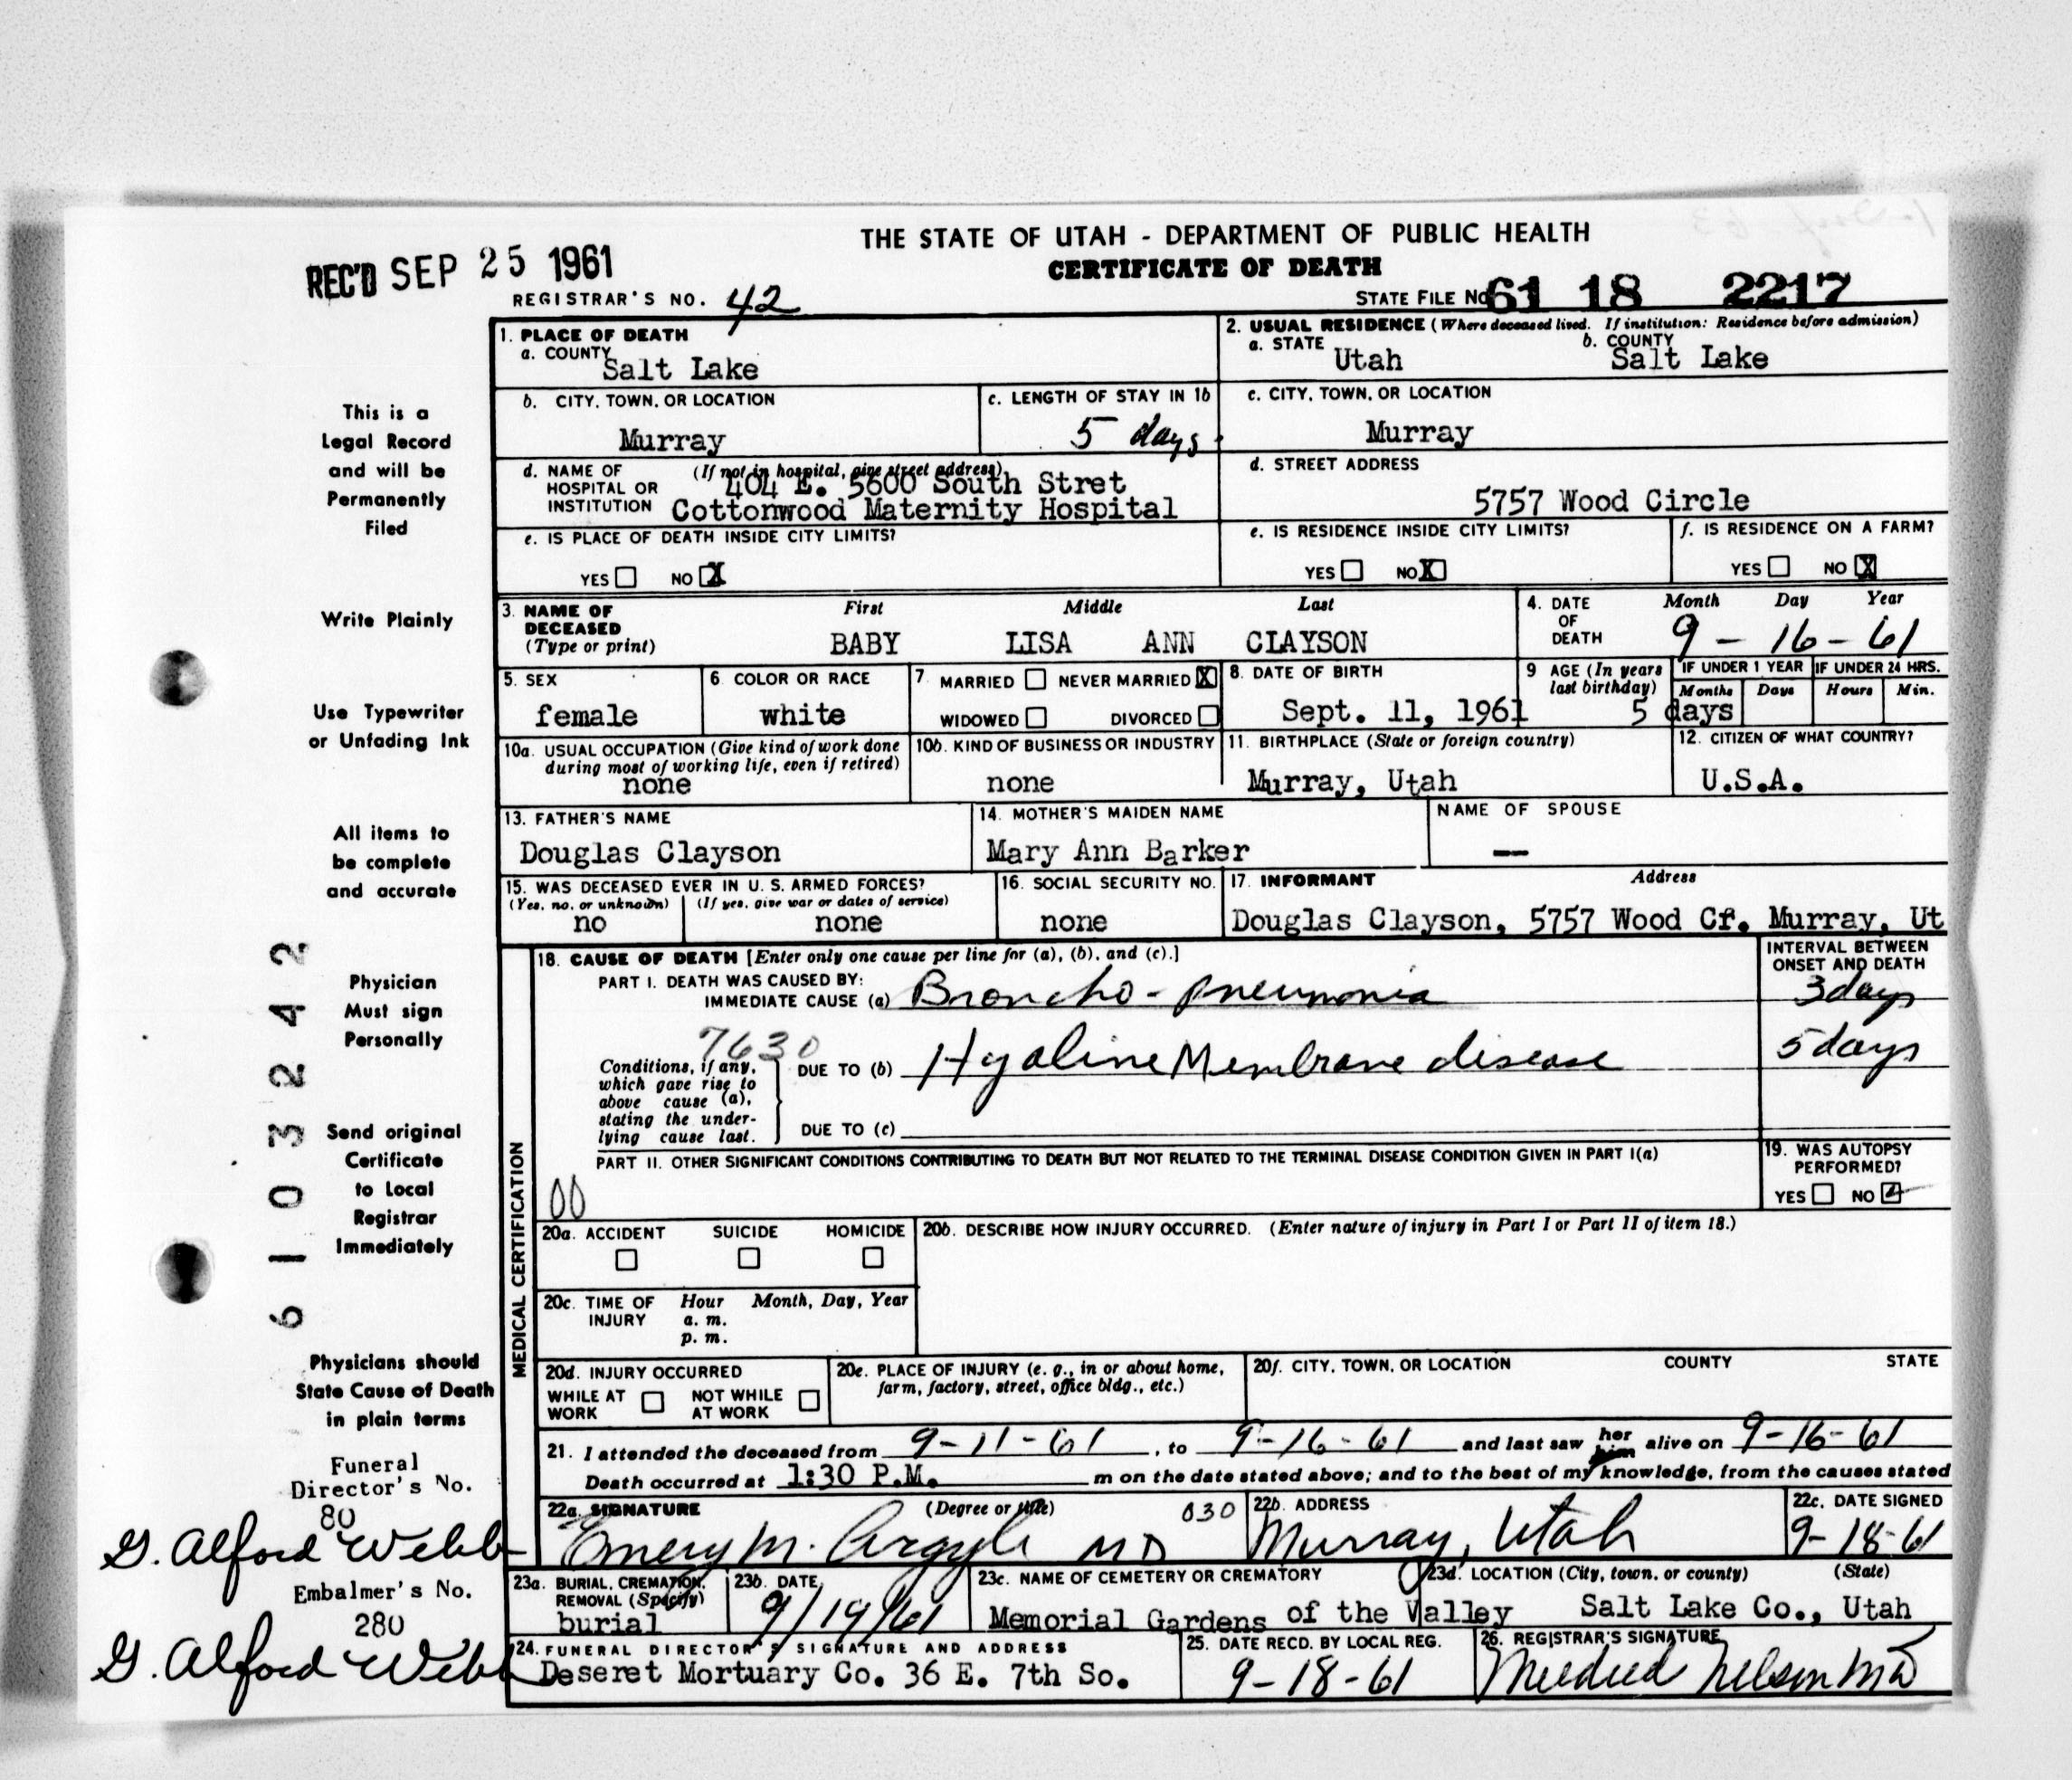 THE STATE OF UTAH - DEPARTMENT OF PUBLIC HEALTH
CERTIFICATE OF DEATH
REC'D SEP 25 1961
REGISTRAR'S NO. 42
STATE FILE No 61 18 2217
This is a
Legal Record
and will be
Permanently
Filed
Write Plainly
Use Typewriter
or Unfading Ink
All items to
be complete
and accurate
Physician
Must sign
Personally
Send original
Certificate
to Local
Registrar
Immediately
Physicians should
State Cause of Death
in plain terms
Funeral
Director's No.
80
G. Alford Webb
Embalmer's No.
280
G. Alford Webb
61032242
1. PLACE OF DEATH
a. COUNTY
Salt Lake
2. USUAL RESIDENCE (Where deceased lived. If institution: Residence before admission)
a. STATE Utah b. COUNTY Salt Lake
b. CITY, TOWN, OR LOCATION
Murray
c. LENGTH OF STAY IN 1b
5 days
c. CITY, TOWN, OR LOCATION
Murray
d. NAME OF HOSPITAL OR INSTITUTION (If not in hospital, give street address)
404 E. 5600 South Stret
Cottonwood Maternity Hospital
d. STREET ADDRESS
5757 Wood Circle
e. IS PLACE OF DEATH INSIDE CITY LIMITS?
YES NO X
e. IS RESIDENCE INSIDE CITY LIMITS?
YES NO X
f. IS RESIDENCE ON A FARM?
YES NO X
3. NAME OF DECEASED (Type or print) First Middle Last
BABY LISA ANN CLAYSON
4. DATE OF DEATH Month Day Year
9 - 16 - 61
5. SEX
female
6. COLOR OR RACE
white
7. MARRIED NEVER MARRIED X
WIDOWED DIVORCED
8. DATE OF BIRTH
Sept. 11, 1961
9 AGE (In years last birthday) IF UNDER 1 YEAR IF UNDER 24 HRS.
Months Days Hours Min.
5 days
10a. USUAL OCCUPATION (Give kind of work done during most of working life, even if retired)
none
10b. KIND OF BUSINESS OR INDUSTRY
none
11. BIRTHPLACE (State or foreign country)
Murray, Utah
12. CITIZEN OF WHAT COUNTRY?
U.S.A.
13. FATHER'S NAME
Douglas Clayson
14. MOTHER'S MAIDEN NAME
Mary Ann Barker
NAME OF SPOUSE
--
15. WAS DECEASED EVER IN U. S. ARMED FORCES?
(Yes, no, or unknown) (If yes, give war or dates of service)
no none
16. SOCIAL SECURITY NO.
none
17. INFORMANT Address
Douglas Clayson, 5757 Wood Cr. Murray, Ut
MEDICAL CERTIFICATION
18. CAUSE OF DEATH [Enter only one cause per line for (a), (b), and (c).]
INTERVAL BETWEEN ONSET AND DEATH
PART I. DEATH WAS CAUSED BY:
IMMEDIATE CAUSE (a) Broncho-pneumonia 3 days
7630
Conditions, if any, which gave rise to above cause (a), stating the underlying cause last.
DUE TO (b) Hyaline Membrane disease 5 days
DUE TO (c)
PART II. OTHER SIGNIFICANT CONDITIONS CONTRIBUTING TO DEATH BUT NOT RELATED TO THE TERMINAL DISEASE CONDITION GIVEN IN PART I(a)
00
19. WAS AUTOPSY PERFORMED?
YES NO
20a. ACCIDENT SUICIDE HOMICIDE
20b. DESCRIBE HOW INJURY OCCURRED. (Enter nature of injury in Part I or Part II of item 18.)
20c. TIME OF INJURY Hour Month, Day, Year
a. m.
p. m.
20d. INJURY OCCURRED
WHILE AT WORK NOT WHILE AT WORK
20e. PLACE OF INJURY (e. g., in or about home, farm, factory, street, office bldg., etc.)
20f. CITY, TOWN, OR LOCATION COUNTY STATE
21. I attended the deceased from 9-11-61, to 9-16-61 and last saw her him alive on 9-16-61
Death occurred at 1:30 P.M. m on the date stated above; and to the best of my knowledge, from the causes stated
22a. SIGNATURE (Degree or title) 030
Emery M. Argyle MD
22b. ADDRESS
Murray, Utah
22c. DATE SIGNED
9-18-61
23a. BURIAL, CREMATION, REMOVAL (Specify)
burial
23b. DATE
9/19/61
23c. NAME OF CEMETERY OR CREMATORY
Memorial Gardens of the Valley
23d. LOCATION (City, town, or county) (State)
Salt Lake Co., Utah
24. FUNERAL DIRECTOR'S SIGNATURE AND ADDRESS
Deseret Mortuary Co. 36 E. 7th So.
25. DATE RECD. BY LOCAL REG.
9-18-61
26. REGISTRAR'S SIGNATURE
Mildred Nelson MD